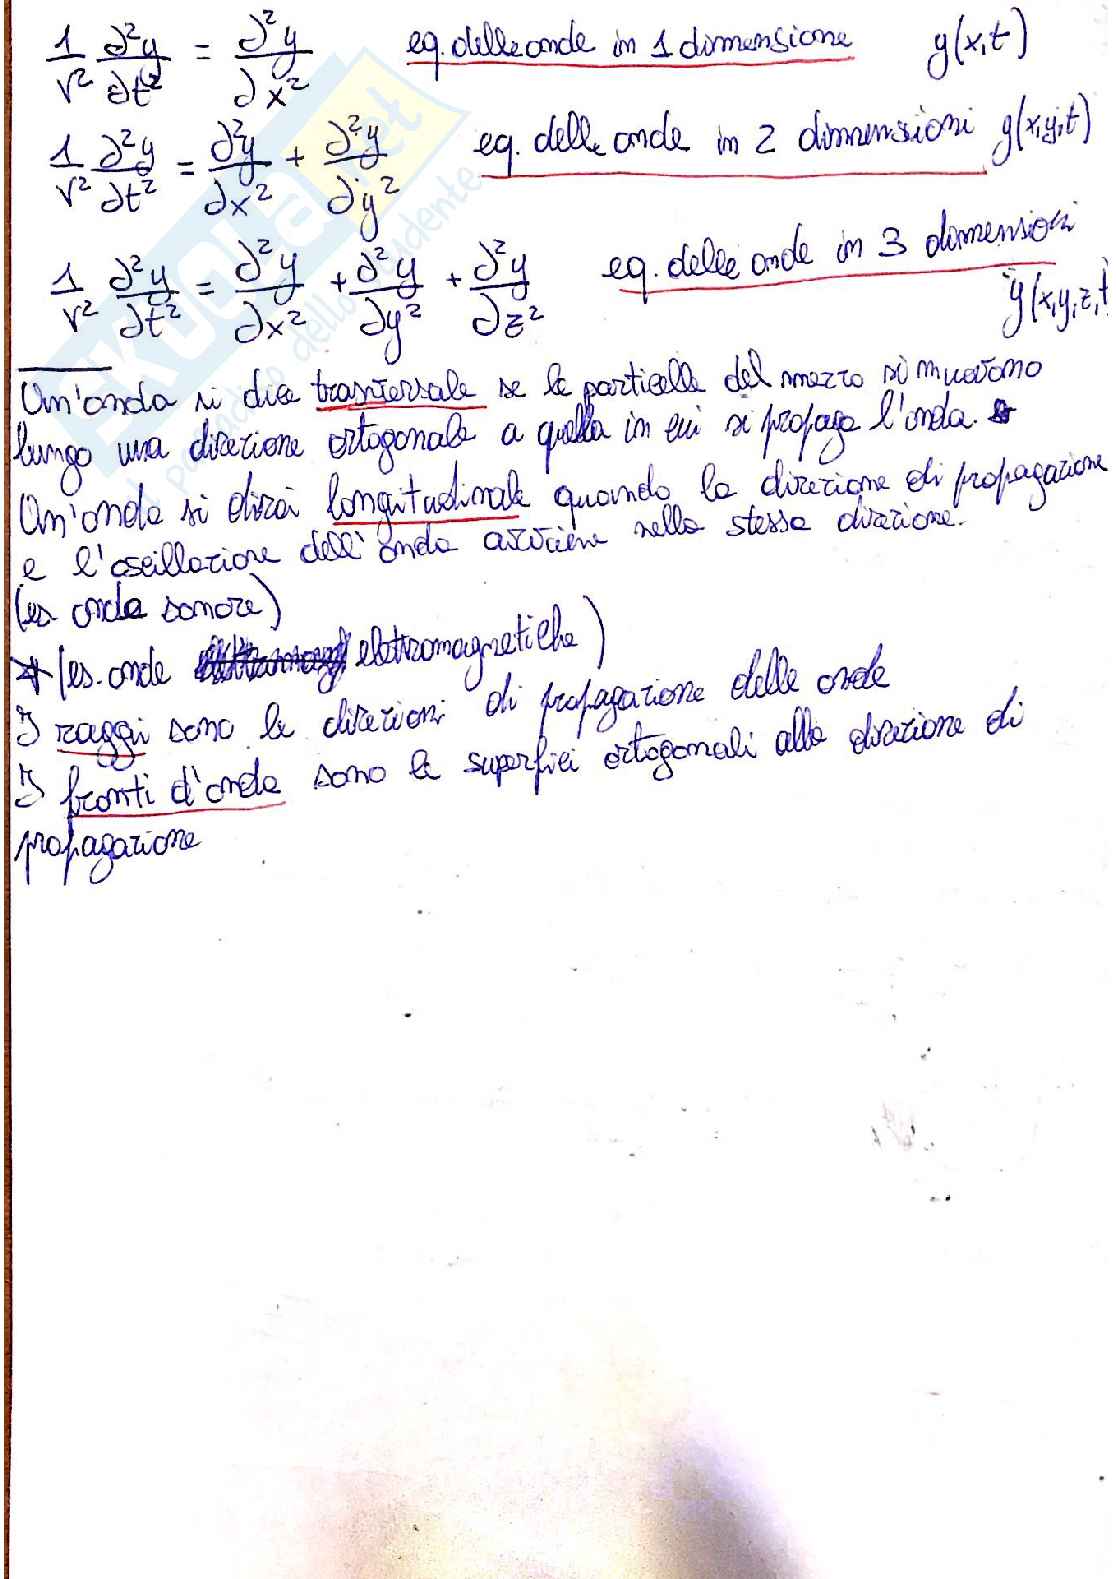 1/v² ∂²y/∂t² = ∂²y/∂x² eq. delle onde in 1 dimensione y(x,t)
1/v² ∂²y/∂t² = ∂²y/∂x² + ∂²y/∂y² eq. delle onde in 2 dimensioni y(x,y,t)
1/v² ∂²y/∂t² = ∂²y/∂x² + ∂²y/∂y² + ∂²y/∂z² eq. delle onde in 3 dimensioni
y(x,y,z,t
Un'onda si dice trasversale se le particelle del mezzo si muovono
lungo una direzione ortogonale a quella in cui si propaga l'onda. *
Un'onda si dirà longitudinale quando la direzione di propagazione
e l'oscillazione dell'onda avviene nella stessa direzione.
(es. onde sonore)
* (es. onde elettromagnetiche)
I raggi sono le direzioni di propagazione delle onde
I fronti d'onda sono le superfici ortogonali alla direzione di
propagazione
skuola.net
il paradiso dello studente